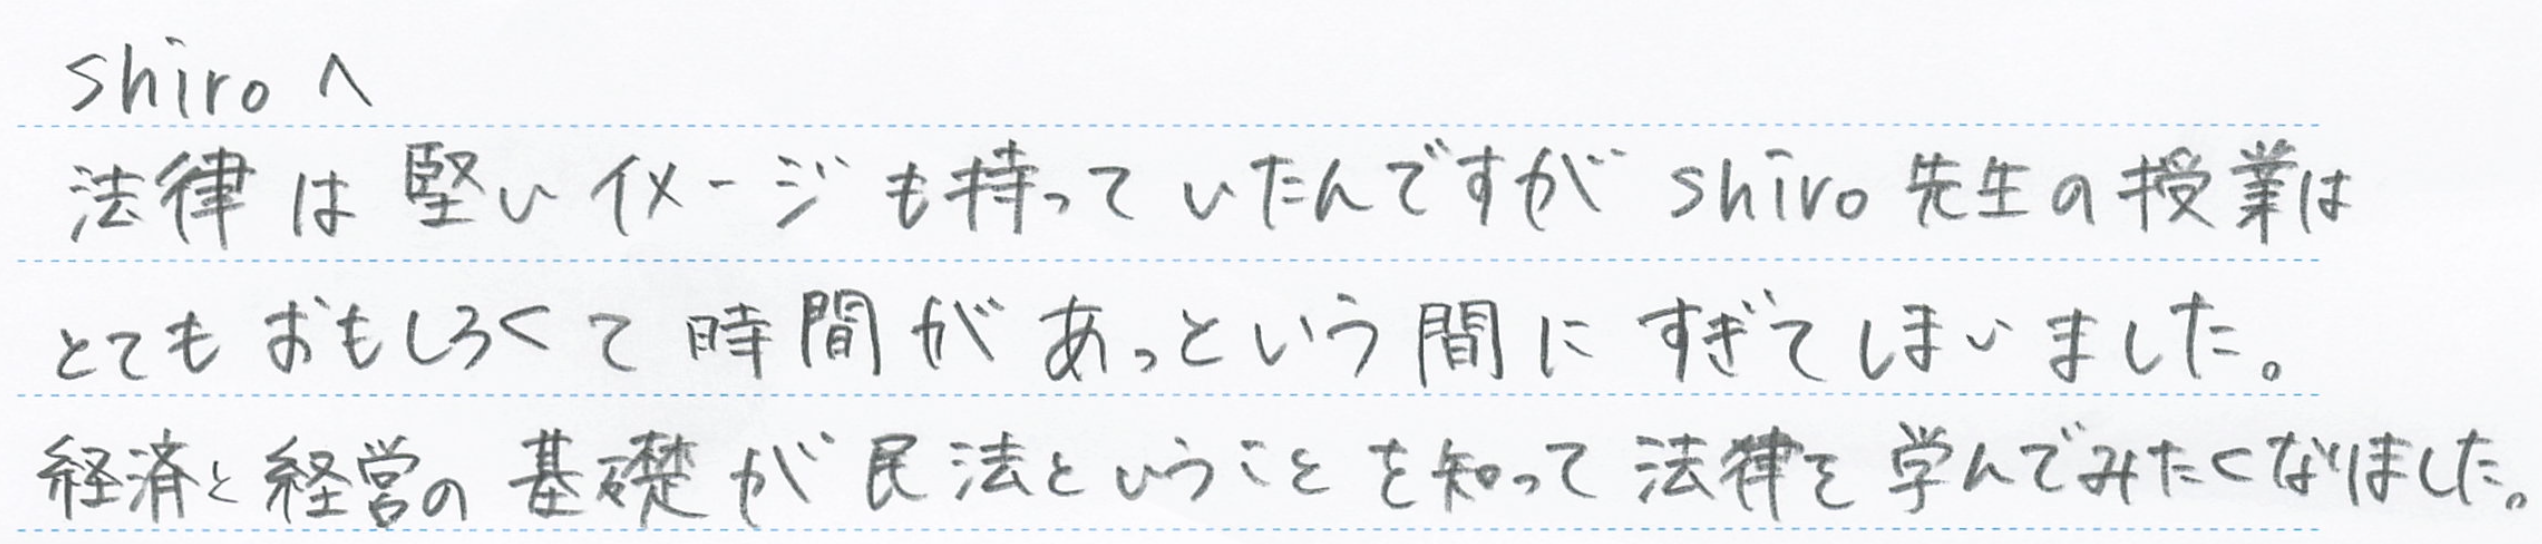 shiroへ
法律は堅いイメージも持っていたんですがshiro先生の授業は
とてもおもしろくて時間があっという間にすぎてしまいました。
経済と経営の基礎が民法ということを知って法律を学んでみたくなりました。